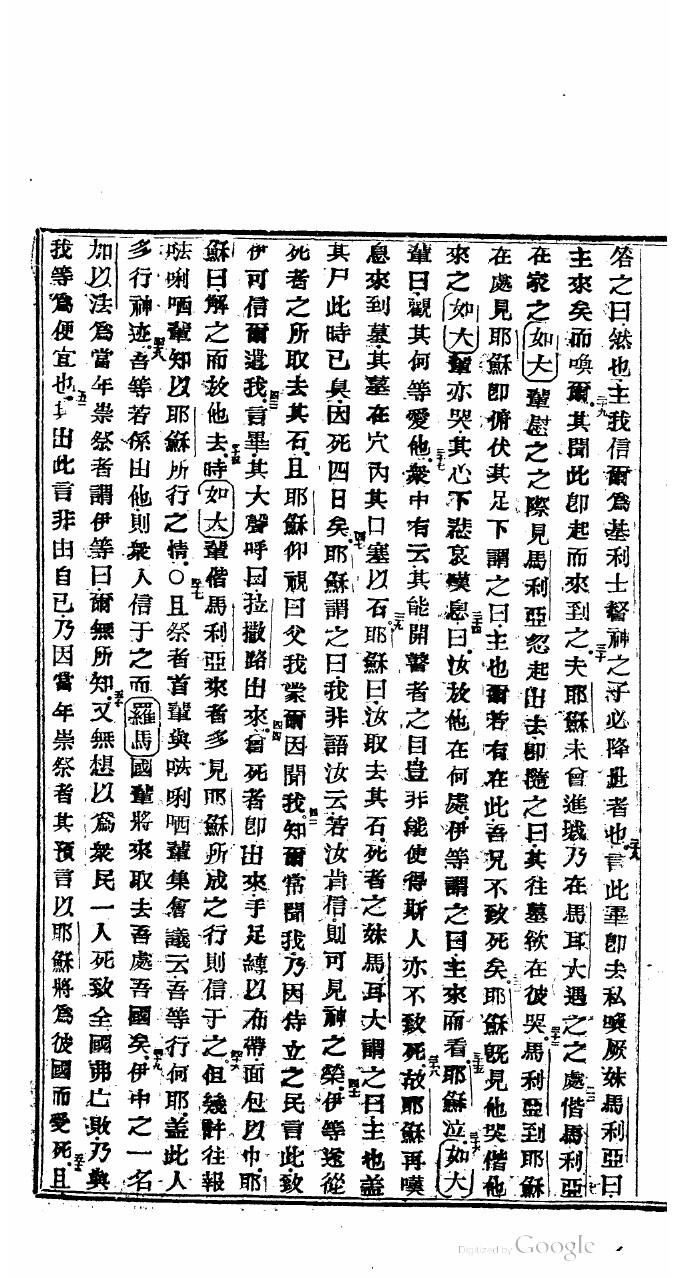 答之曰然也主我信爾爲基利士督神之子必降世者也言此畢卽去私喚厥妹馬利亞曰
主來矣而喚爾其聞此卽起而來到之夫耶穌未曾進城乃在馬耳大遇之之處偕馬利亞
在家之如大輩慰之之際見馬利亞忽起出去卽隨之曰其往墓欲在彼哭馬利亞到耶穌
在處見耶穌卽俯伏其足下謂之曰主也爾若有在此吾兄不致死矣耶穌旣見他哭偕他
來之如大輩亦哭其心下悲哀嘆息曰汝放他在何處伊等謂之曰主來而看耶穌泣如大
輩曰觀其何等愛他衆中有云其能開瞽者之目豈非能使得斯人亦不致死故耶穌再嘆
息來到墓其墓在穴內其口塞以石耶穌曰汝取去其石死者之妹馬耳大謂之曰主也蓋
其尸此時已臭因死四日矣耶穌謂之曰我非語汝云若汝肯信則可見神之榮伊等遂從
死者之所取去其石且耶穌仰視曰父我蒙爾因聞我知爾常聞我乃因侍立之民言此致
伊可信爾遣我言畢其大聲呼曰拉撒路出來曾死者卽出來手足縛以布帶面包以巾耶
穌曰解之而放他去時如大輩偕馬利亞來者多見耶穌所成之行則信于之但幾許往報
𠵽唎哂輩知以耶穌所行之情〇且祭者首輩與𠵽唎哂輩集會議云吾等行何耶蓋此人
多行神迹吾等若係由他則衆人信于之而羅馬國輩將來取去吾處吾國矣伊中之一名
加以法爲當年崇祭者謂伊等曰爾無所知又無想以爲衆民一人死致全國弗亡敗乃與
我等爲便宜也其出此言非由自己乃因當年崇祭者其預言以耶穌將爲彼國而受死且
Digitized by Google